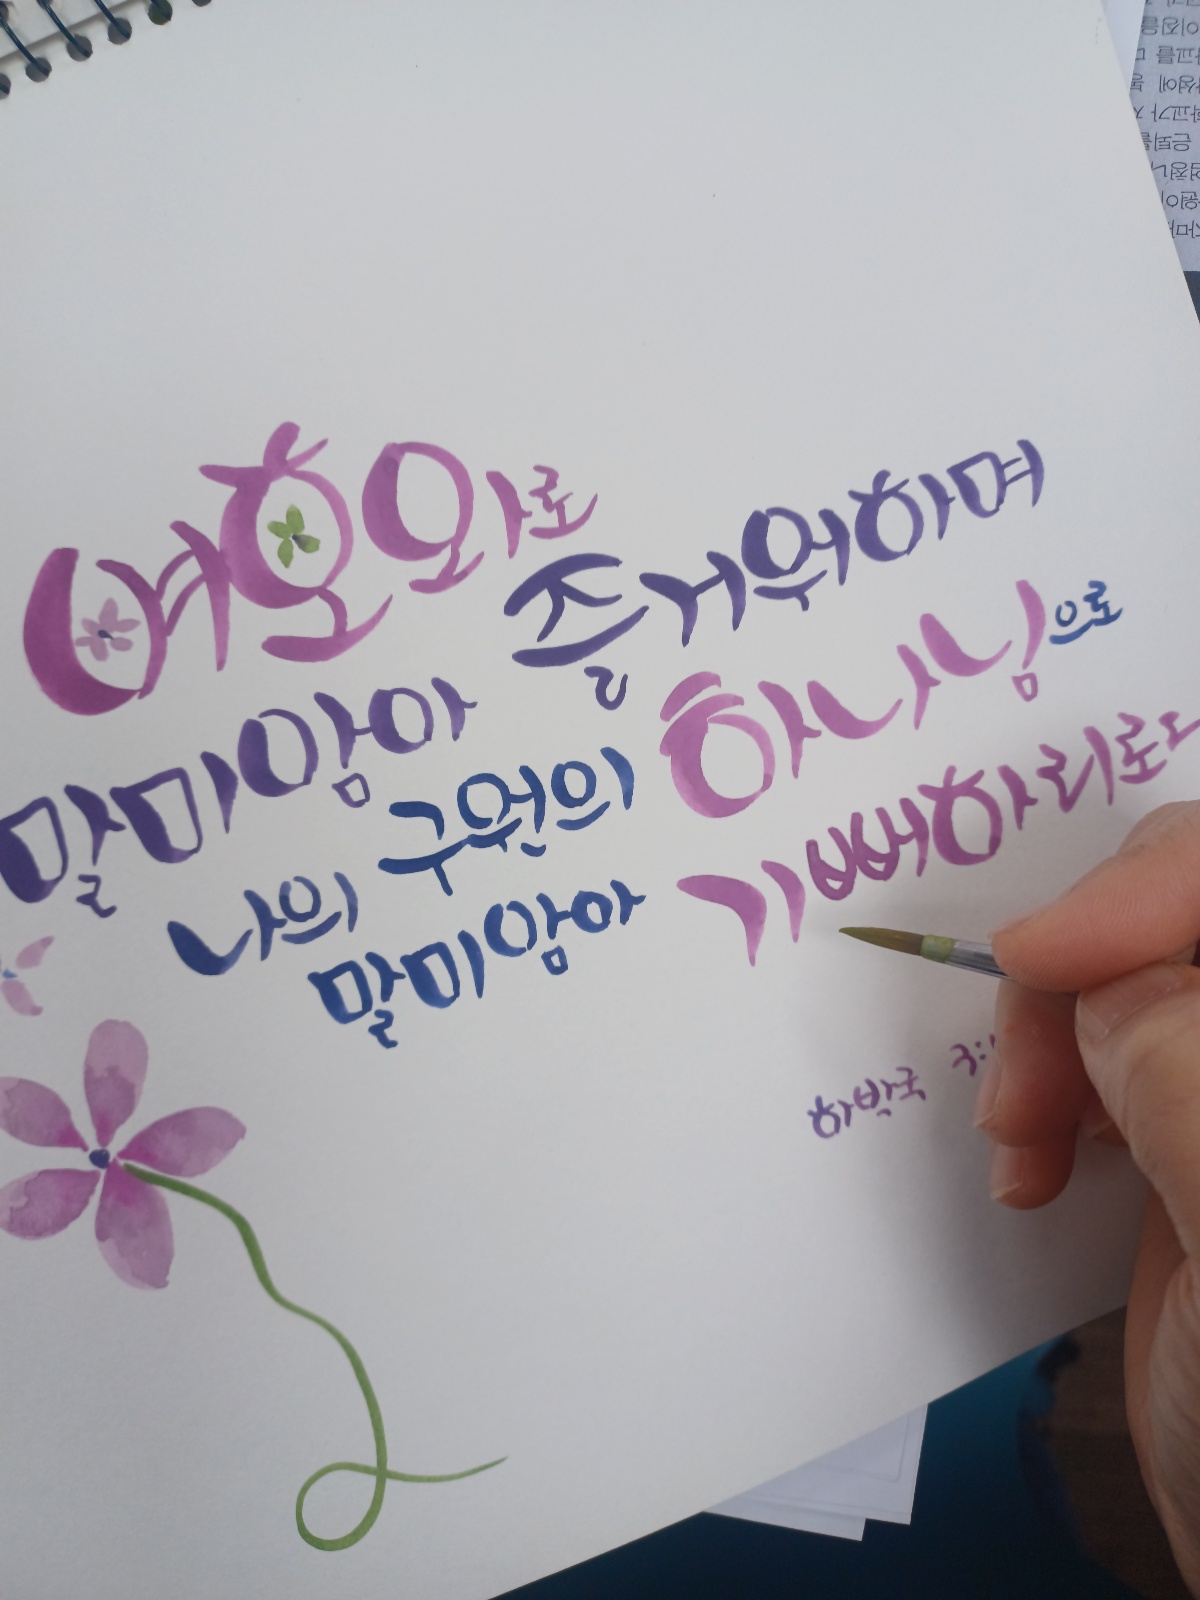 여호와로
말미암아 즐거워하며
나의 구원의 하나님으로
말미암아 기뻐하리로
하박국 3: